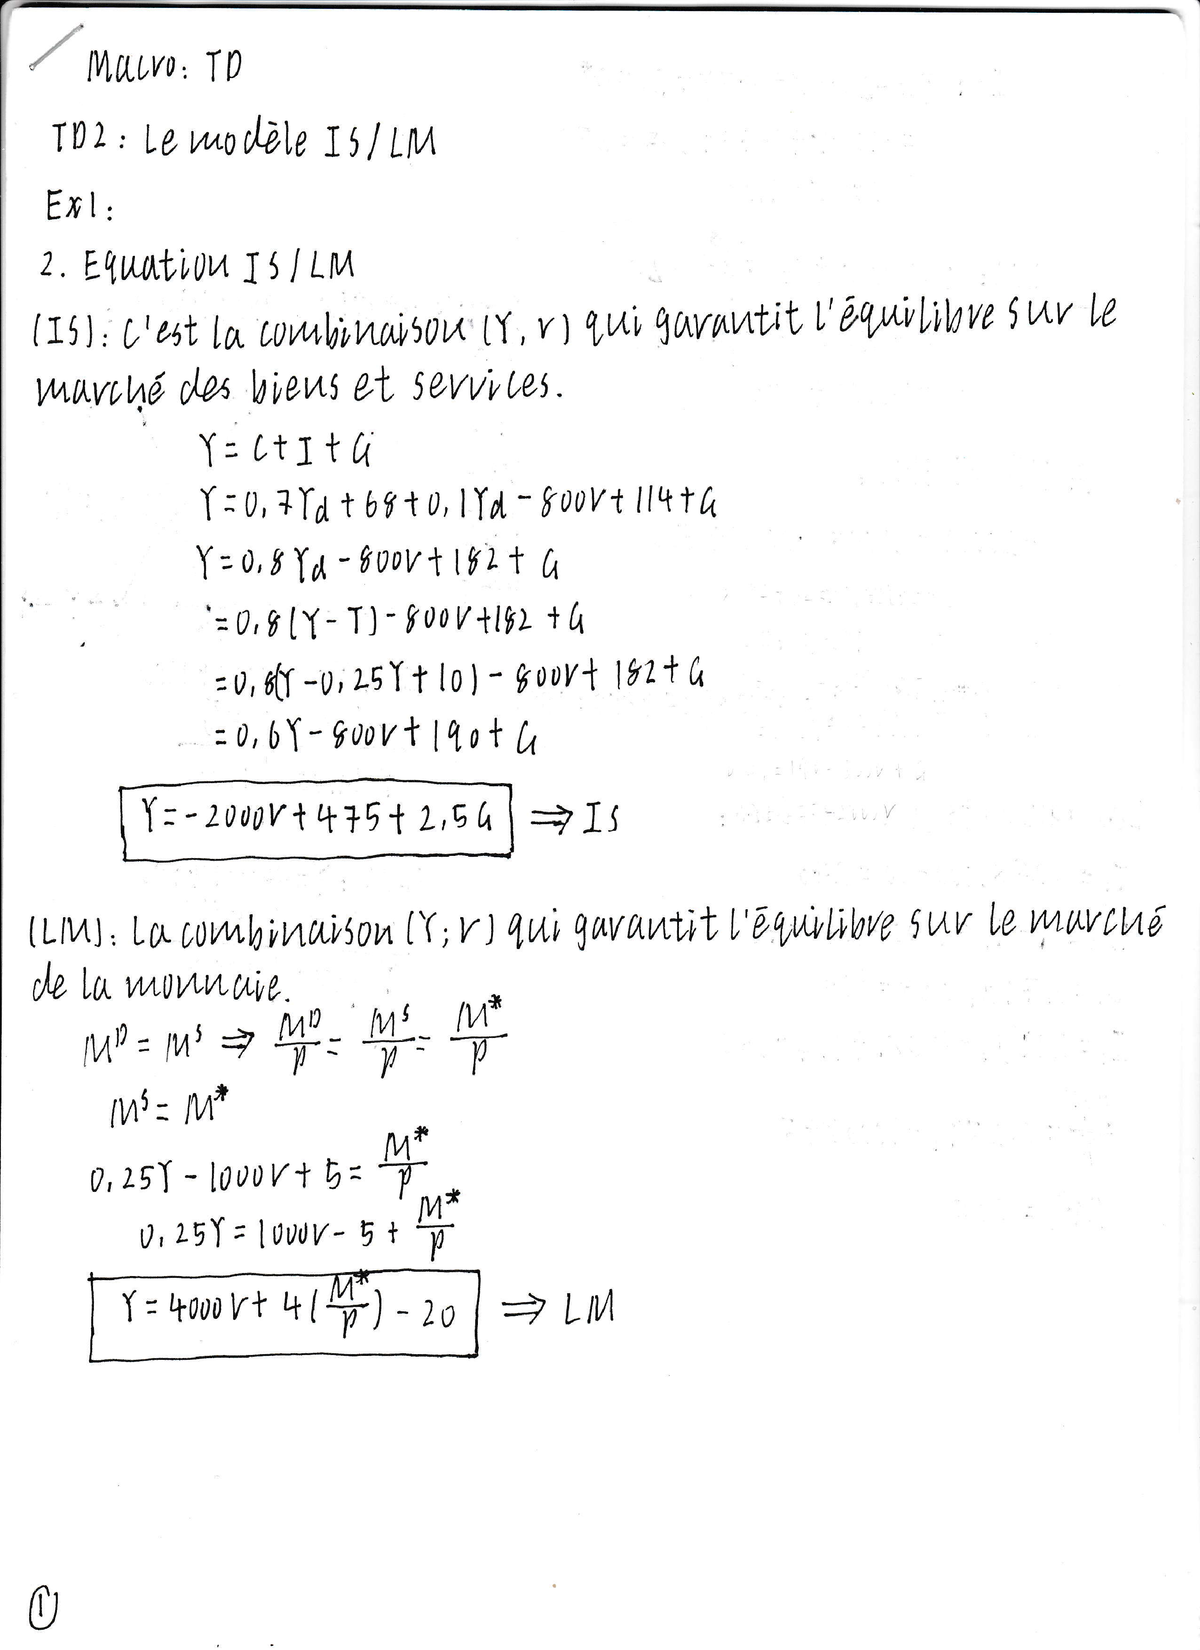 Macro: TD
TD2: Le modèle IS/LM
Ex1:
2. Equation IS/LM
(IS): C'est la combinaison (Y, r) qui garantit l'équilibre sur le
marché des biens et services.
Y = C + I + G
Y = 0,7Yd + 68 + 0,1Yd - 800r + 114 + G
Y = 0,8Yd - 800r + 182 + G
= 0,8(Y - T) - 800r + 182 + G
= 0,8(Y - 0,25Y + 10) - 800r + 182 + G
= 0,6Y - 800r + 190 + G
Y = -2000r + 475 + 2,5G ⇒ IS
(LM): La combinaison (Y; r) qui garantit l'équilibre sur le marché
de la monnaie.
M^D = M^S ⇒ M^D/P = M^S/P = M*/P
M^S = M*
0,25Y - 1000r + 5 = M*/P
0,25Y = 1000r - 5 + M*/P
Y = 4000r + 4(M*/P) - 20 ⇒ LM
1